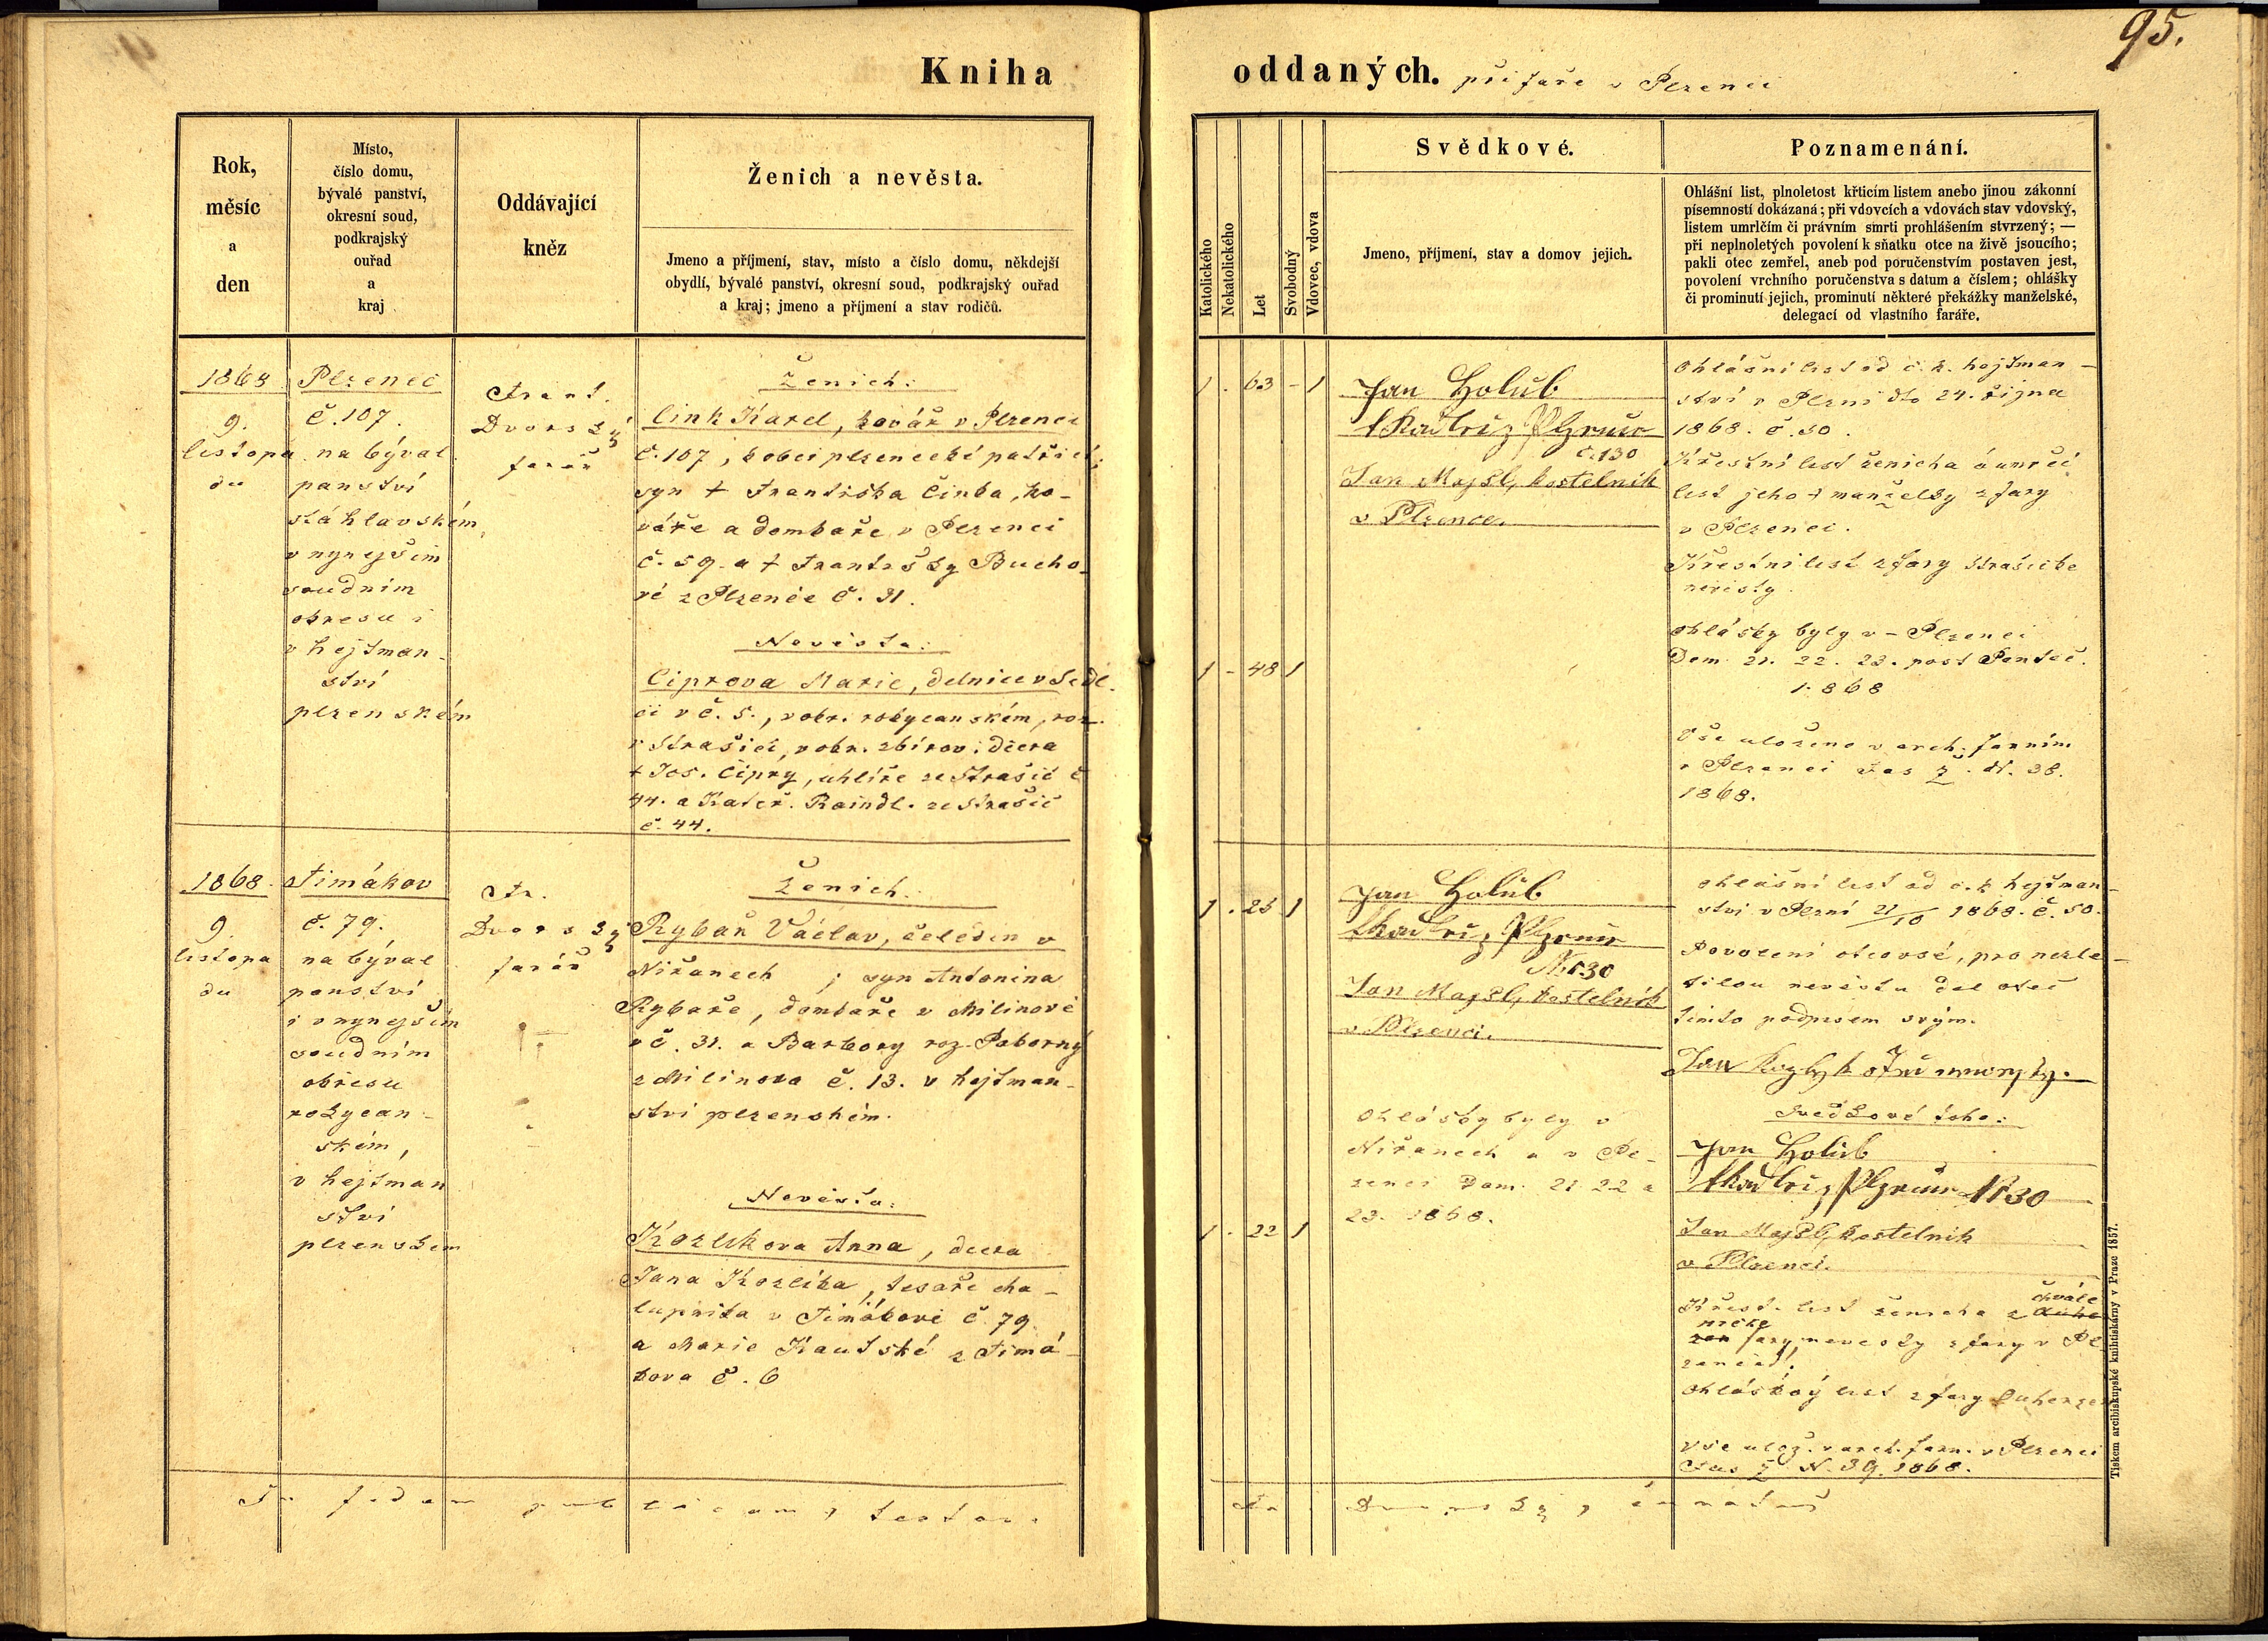 95.
Kniha
oddaných. při faře v Plzenci
Rok,
měsíc
a
den
Místo,
číslo domu,
bývalé panství,
okresní soud,
podkrajský
ouřad
a
kraj
Oddávající
kněz
Ženich a nevěsta.
Jmeno a příjmení, stav, místo a číslo domu, někdejší
obydlí, bývalé panství, okresní soud, podkrajský ouřad
a kraj; jmeno a příjmení a stav rodičů.
Katolického
Nekatolického
Let
Svobodný
Vdovec, vdova
Svědkové.
Jmeno, příjmení, stav a domov jejich.
Poznamenání.
Ohlášní list, plnoletost křticím listem anebo jinou zákonní
písemností dokázaná; při vdovcích a vdovách stav vdovský,
listem umrlčím či právním smrti prohlášením stvrzený; —
při neplnoletých povolení k sňatku otce na živě jsoucího;
pakli otec zemřel, aneb pod poručenstvím postaven jest,
povolení vrchního poručenstva s datum a číslem; ohlášky
či prominutí jejich, prominutí některé překážky manželské,
delegací od vlastního faráře.
1868
9.
listopa
du
Plzenec
č. 107.
na býval
panství
štáhlavském,
v nynejším
soudním
okresu i
v hejtman-
ství
plzenském
Frant.
Dvorský
farář
Ženich:
Cink Karel, kovář v Plzenci
č. 107, k obci plzenecké patřící;
syn † Františka Činka, ko-
váře a domkaře v Plzenci
č. 59. a † Františky Bucho-
vé z Plzence č. 31.
Nevěsta:
Ciprova Marie, delnice v Sedl-
ci v č. 5., v okr. rokycanském, roz.
v Strašicí, v okr. zbirov: dcera
† Jos. Čipry, uhlíře ze Strašic č
44. a Kateř. Raindl. ze Strašic
č. 44.
1 . 63 - 1
1 - 48 1
Jan Holub
z Plzence
č. 130
Jan Majzl, kostelník
v Plzence.
Ohlášní list od c. k. hejtman-
ství v Plzni dto 24. října
1868. č. 50.
Křestní list ženicha a umrčí
list jeho † manželky z fary
v Plzenci.
Křestní list z fary Strašické
nevěsty.
Ohlášky byly v - Plzenci
Dom. 21. 22. 23. post Pentec.
1868
Vše uloženo v arch. farním
v Plzenci Fas Ž. N. 38.
1868.
1868.
9.
listopa
du
Timákov
č. 79.
na býval
panství
i v nynejším
soudním
okresu
rokycan-
ském,
v hejtman
ství
plzenskem
Fr.
Dvorský
farář
Ženich:
Rybař Václav, čeledín v
Niřanech ; syn Antonina
Rybaře, domkaře v Milinově
v č. 31. a Barbory roz. Poborný
z Milinova č. 13. v hejtman-
ství plzenském.
Nevěsta:
Kozlikova Anna, dcera
Jana Kozlíka, tesaře cha-
lupníka v Timákově č. 79
a Marie Kautské z Timá-
kova č. 6
1 . 25 1
1 . 22 1
Jan Holub
Nr 30
Jan Majzl, kostelník
v Plzenci.
Ohlášky byly v
Niřanech a v Pl-
zenci Dom. 21 22 a
23. 1868.
Ohlašní list od c. k hejtman-
ství v Plzní 21/10 1868. č. 50.
Povolení otcovsé, pro nezle-
tilou nevěstu dal otec
tímto podpisem svým.
Svědkové toho:
Jan Holub
Nr 30
Jan Majzl, kostelník
v Plzenci.
Křest. list ženicha z chvále
nické fary, nevesty z fary v Pl
zenci.
Ohláškový list z fary
Vše ulož. v arch. farn. v Plzenci
Fas Ž N. 39. 1868.
In fidem publicam, testor.
Fr. Dvorský, farář
Tiskem arcibiskupské knihtiskárny v Praze 1857.